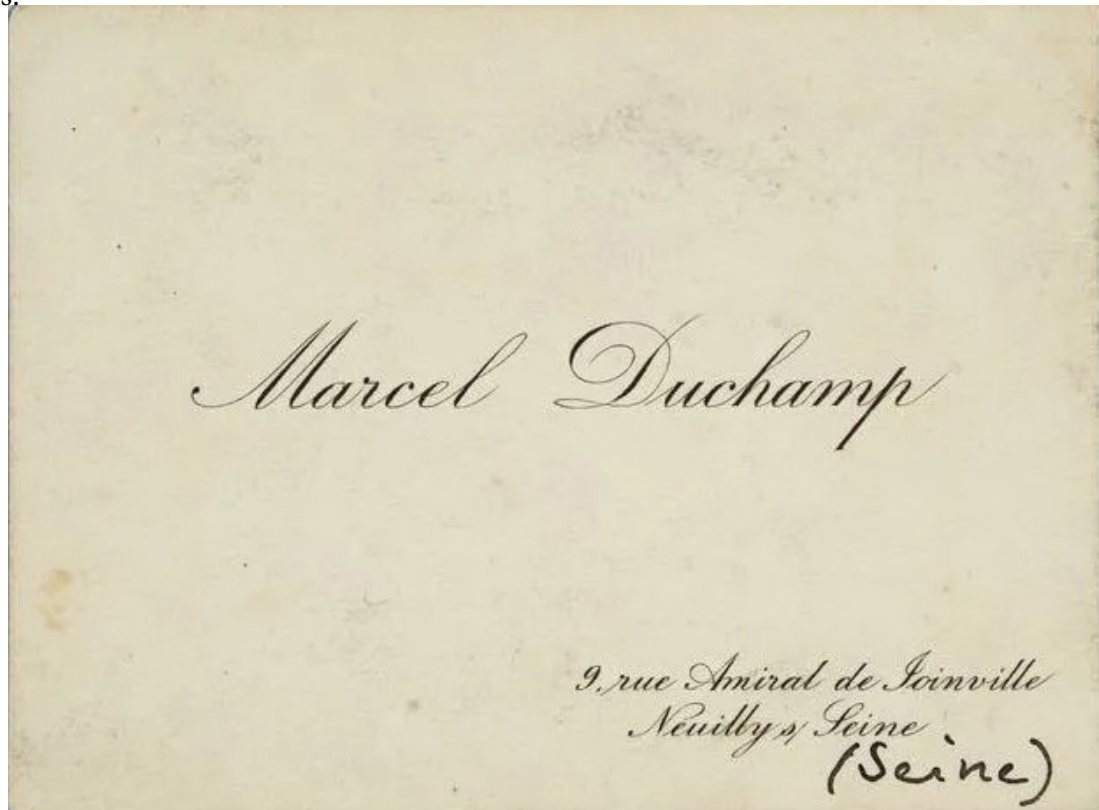 s.
Marcel Duchamp
9. rue Amiral de Joinville
Neuilly s/ Seine
(Seine)